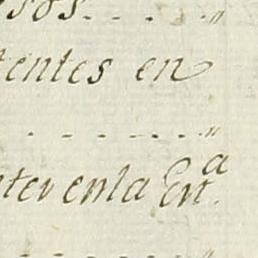 sos. . . . . "
tentes en
. . . . . . . . "
nter en la Ert.ª
. . . . . . . . "